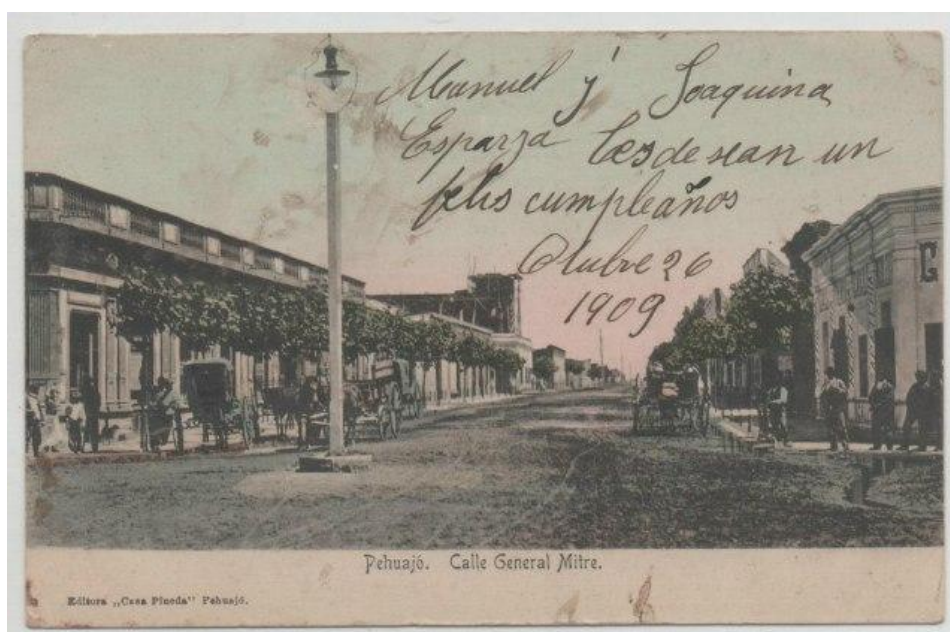 Manuel y Joaquina
Esparza les desean un
felis cumpleaños
Octubre 26
1909
G
Pehuajó. Calle General Mitre.
Editora „Casa Pineda" Pehuajó.